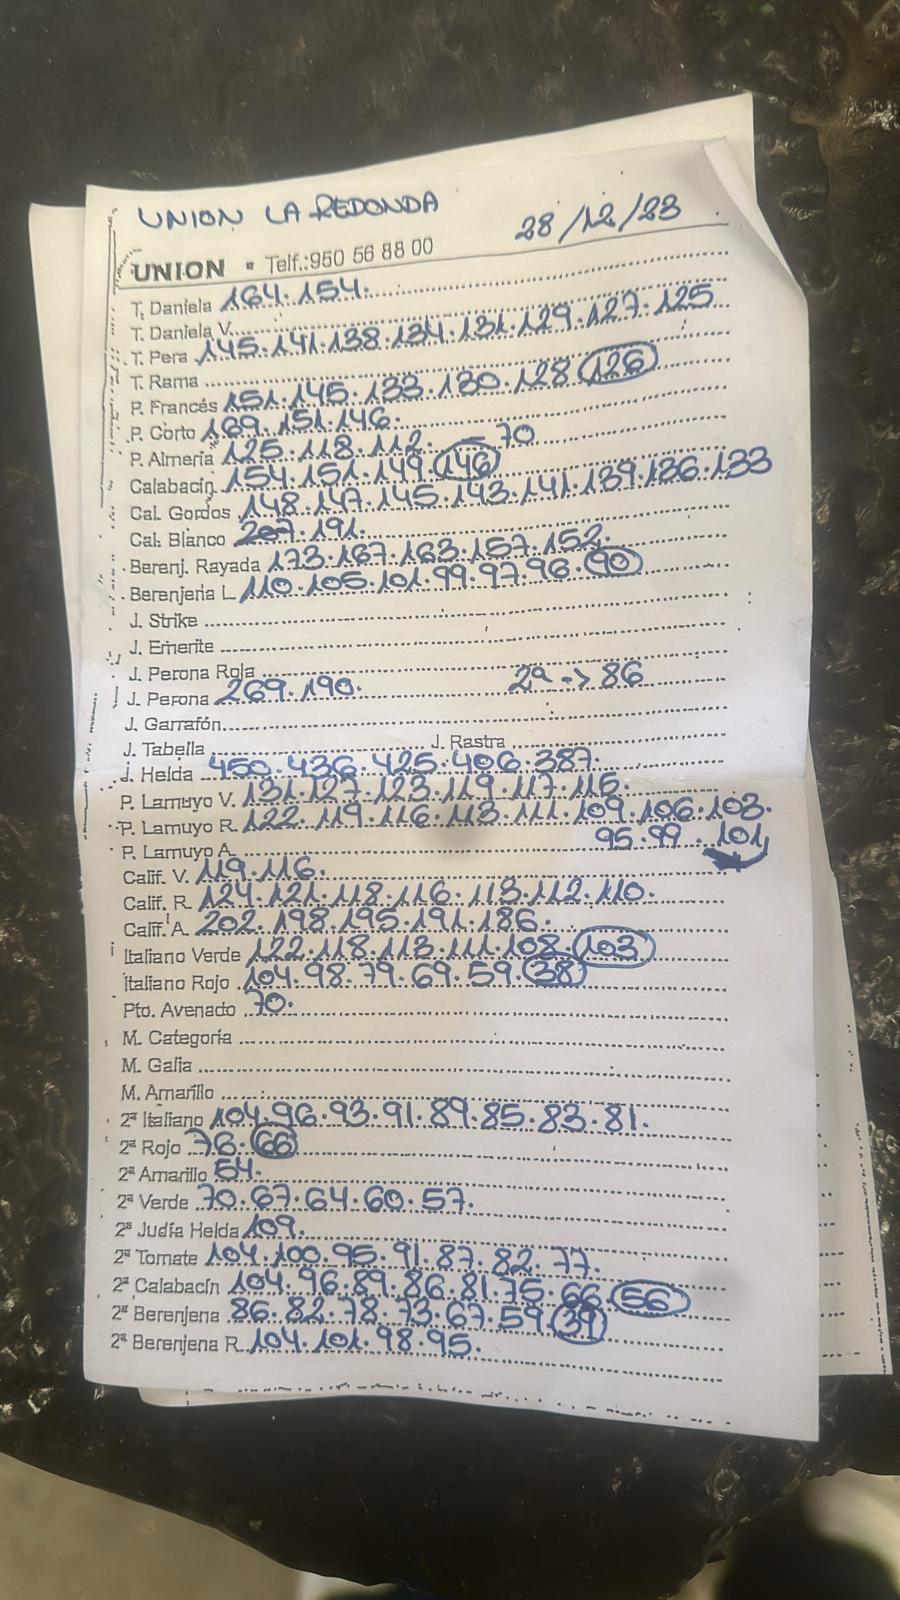 UNION LA REDONDA 28/12/23
UNION • Telf.:950 56 88 00
T. Daniela 164.154.
T. Daniela V.
T. Pera 145.141.138.134.131.129.127.125
T. Rama
P. Francés 151.145.133.130.128.126
P. Corto 169.151.146.
P. Almería 125.118.112. 70
Calabacín 154.151.149.146
Cal. Gordos 148.147.145.143.141.139.136.133
Cal. Blanco 207.191.
Berenj. Rayada 173.167.163.157.152.
Berenjena L. 110.105.101.99.97.96.90
J. Strike
J. Emerite
J. Perona Roja
J. Perona 269.190. 2ª -> 86
J. Garrafón
J. Tabella J. Rastra
J. Helda 450.436.425.406.387.
P. Lamuyo V. 131.127.123.119.117.115.
P. Lamuyo R. 122.119.116.113.111.109.106.103.
P. Lamuyo A. 95.99.101
Calif. V. 119.116.
Calif. R. 124.121.118.116.113.112.110.
Calif. A. 202.198.195.191.186.
Italiano Verde 122.118.113.111.108.103
Italiano Rojo 104.98.79.69.59.38
Pto. Avenado 70.
M. Categoría
M. Galia
M. Amarillo
2ª Italiano 104.96.93.91.89.85.83.81.
2ª Rojo 76.66
2ª Amarillo 54.
2ª Verde 70.67.64.60.57.
2ª Judía Helda 109.
2ª Tomate 104.100.95.91.87.82.77.
2ª Calabacín 104.96.89.86.81.75.66.56
2ª Berenjena 86.82.78.73.67.59.39
2ª Berenjena R. 104.101.98.95.